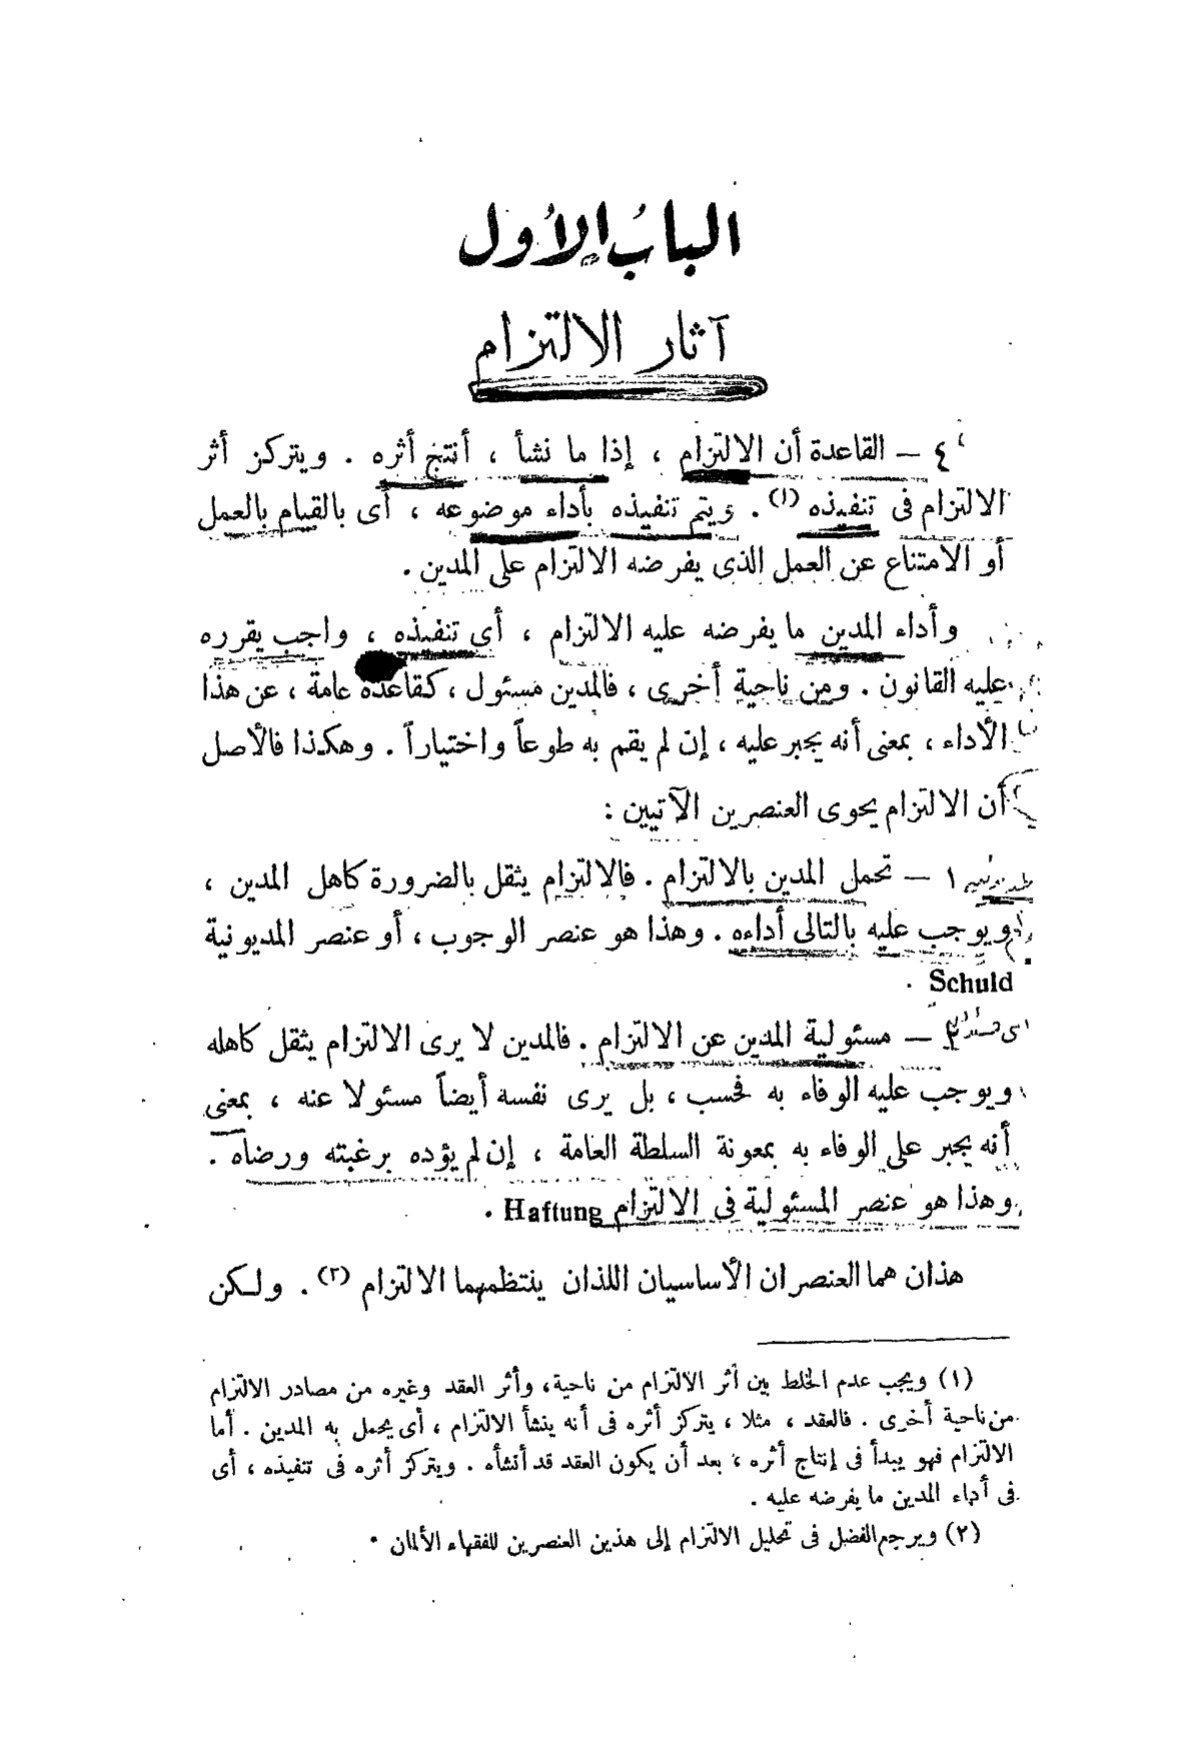 الباب الأول
آثار الالتزام
٤ — القاعدة أن الالتزام ، إذا ما نشأ ، أنتج أثره . ويتركز أثر
الالتزام فى تنفيذه (١) . ويتم تنفيذه بأداء موضوعه ، أى بالقيام بالعمل
أو الامتناع عن العمل الذى يفرضه الالتزام على المدين .
وأداء المدين ما يفرضه عليه الالتزام ، أى تنفيذه ، واجب يقرره
عليه القانون . ومن ناحية أخرى ، فالمدين مسئول ، كقاعدة عامة ، عن هذا
الأداء ، بمعنى أنه يجبر عليه ، إن لم يقم به طوعاً واختياراً . وهكذا فالأصل
أن الالتزام يحوى العنصرين الآتيين :
١ — تحمل المدين بالالتزام . فالالتزام يثقل بالضرورة كاهل المدين ،
ويوجب عليه بالتالى أداءه . وهذا هو عنصر الوجوب ، أو عنصر المديونية
Schuld .
٢ — مسئولية المدين عن الالتزام . فالمدين لا يرى الالتزام يثقل كاهله
ويوجب عليه الوفاء به فحسب ، بل يرى نفسه أيضاً مسئولا عنه ، بمعنى
أنه يجبر على الوفاء به بمعونة السلطة العامة ، إن لم يؤده برغبته ورضاه .
وهذا هو عنصر المسئولية فى الالتزام Haftung .
هذان هما العنصران الأساسيان اللذان ينتظمهما الالتزام (٢) . ولكن
(١) ويجب عدم الخلط بين أثر الالتزام من ناحية ، وأثر العقد وغيره من مصادر الالتزام
من ناحية أخرى . فالعقد ، مثلا ، يتركز أثره فى أنه ينشأ الالتزام ، أى يحمل به المدين . أما
الالتزام فهو يبدأ فى إنتاج أثره ، بعد أن يكون العقد قد أنشأه . ويتركز أثره فى تنفيذه ، أى
فى أداء المدين ما يفرضه عليه .
(٢) ويرجع الفضل فى تحليل الالتزام إلى هذين العنصرين للفقهاء الألمان .